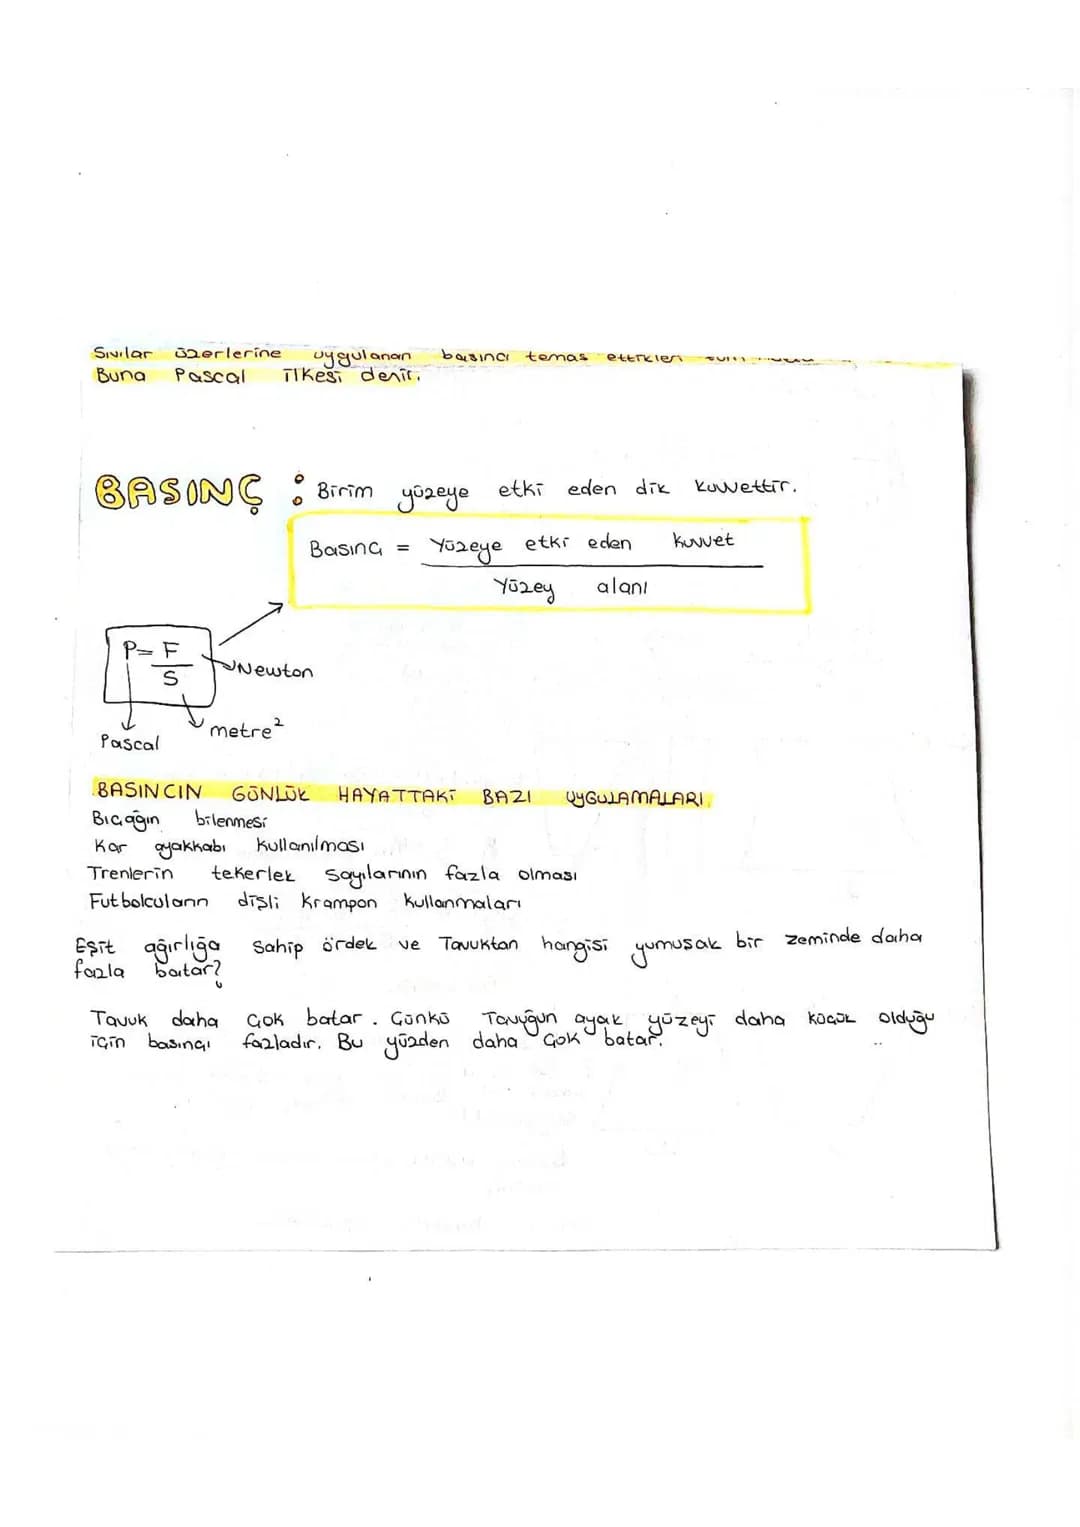 Sıvılar üzerlerine uygulanan basıncı temas ettikleri
Buna Pascal ilkesi denir.
BASINÇ : Birim yüzeye etki eden dik kuvvettir.
Basınç = Yüzeye etki eden kuvvet
Yüzey alanı
P = F
S
Newton
metre²
Pascal
BASINCIN GÜNLÜK HAYATTAKİ BAZI UYGULAMALARI
Bıçağın bilenmesi
Kar ayakkabı kullanılması
Trenlerin tekerlek sayılarının fazla olması
Futbolcuların dişli krampon kullanmaları
Eşit ağırlığa sahip ördek ve Tavuktan hangisi yumuşak bir zeminde daha
fazla batar?
Tavuk daha çok batar. Çünkü Tavuğun ayak yüzeyi daha küçük olduğu
için basıncı fazladır. Bu yüzden daha çok batar.